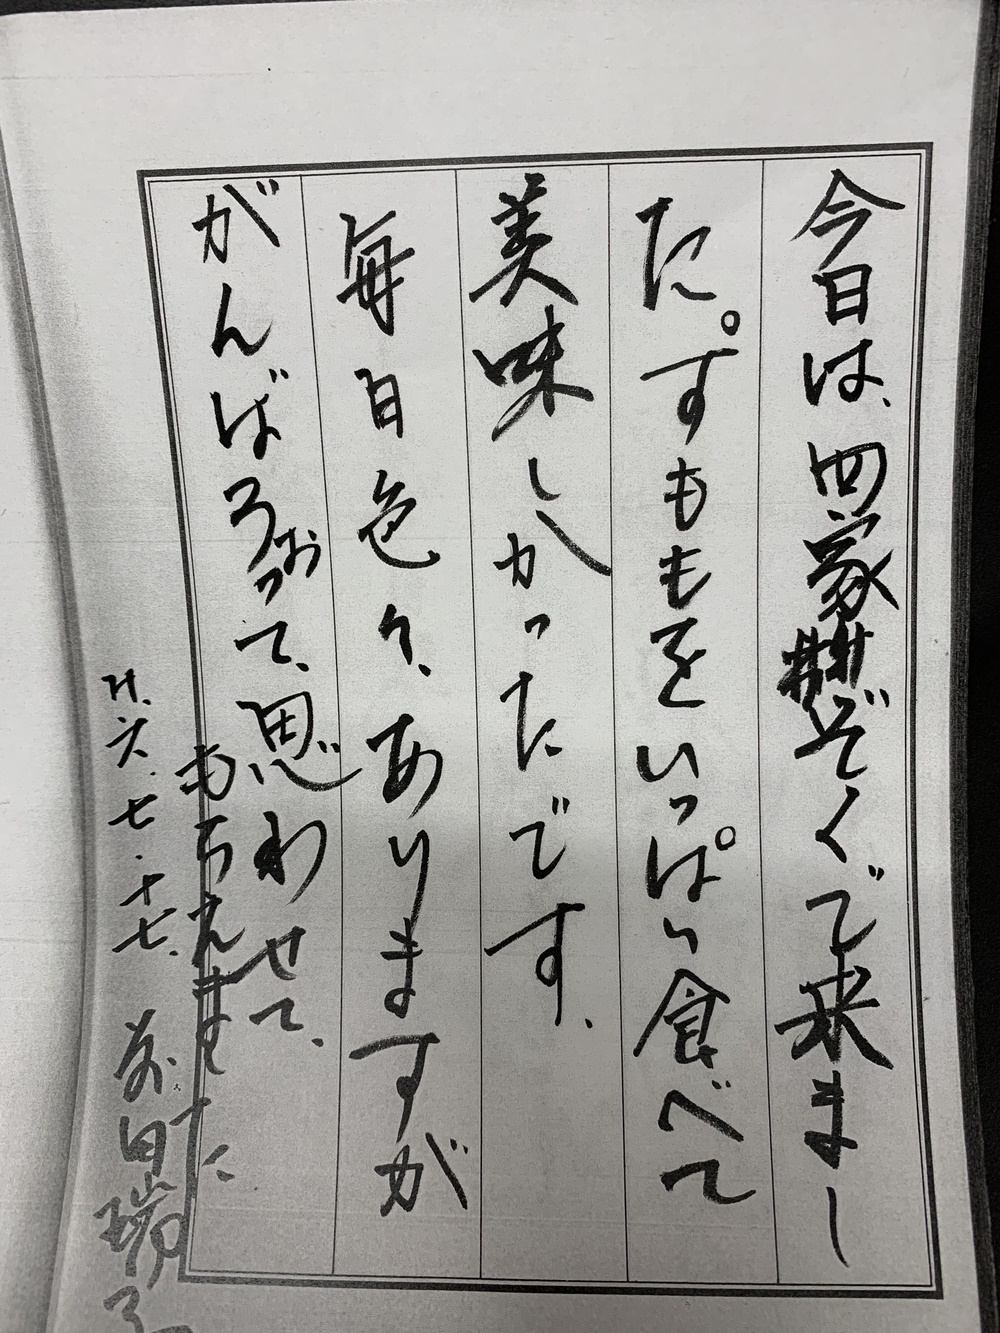 今日は、四家ぞくで来まし
た。すももをいっぱい食べて
美味しかったです、
毎日色々、ありますが
がんばろおって、思わせて、
もらえました
H.六.七.十七.
前田瑞子